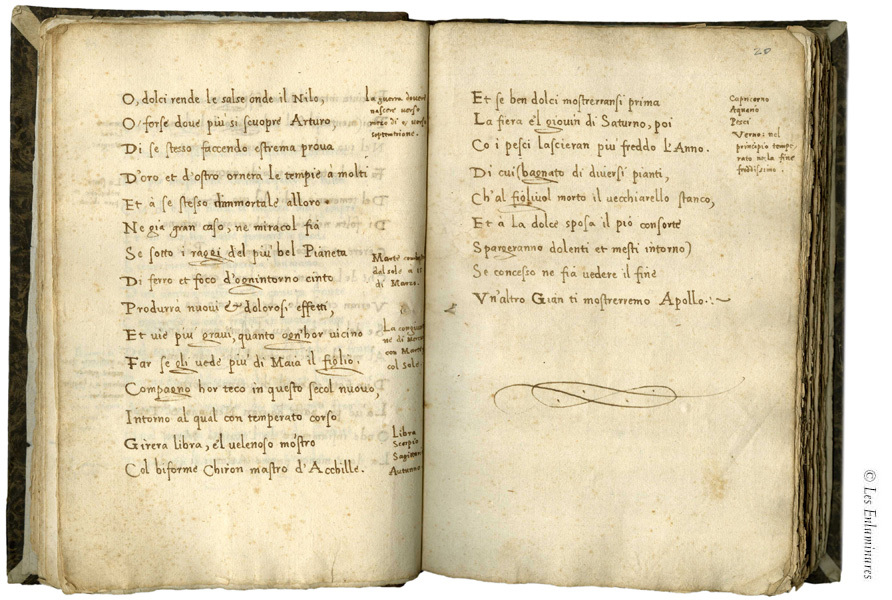 O, dolci rende le salse onde il Nilo,
O' forse doue più si scuopre Arturo,
Di se stesso faccendo estrema proua
D'oro et d'ostro ornerà le tempie à molti
Et à se stesso d'immortale alloro.
Ne già gran caso, ne miracol fia
Se sotto i raggi del piu bel Pianeta
Di ferro et foco d'ogn'intorno cinto
Produrrà nuoui et dolorosi effetti,
Et vie piu graui, quanto ogn'hor uicino
Far se gli uede piu di Maia il figlio.
Compagno hor teco in questo secol nuouo,
Intorno al qual con temperato corso
Girera libra, e'l uelenoso mostro
Col biforme Chiron mastro d'Acchille.
la guerra douer
nascere uerso
mezo di o uerso
septentrione.
Marte
dal sole a
di Marzo.
La
ne di
con Marte
col Sole.
Libra
Scorpio
Sagittari
Autunno
20
Et se ben dolci mostrerransi prima
La fiera e'l giouin di Saturno, poi
Co i pesci lascieran piu freddo l'Anno.
Di cui (bagnato di diuersi pianti,
Ch'al figliuol morto il uecchiarello stanco,
Et à la dolce sposa il pio consorte
Spargeranno dolenti et mesti intorno)
Se concesso ne fia uedere il fine
Vn'altro Gian ti mostrerremo Apollo.
Capricorno
Aquario
Pesci
Verno: nel
principio tempe
rato nela fine
freddissimo.
© Les Enluminures